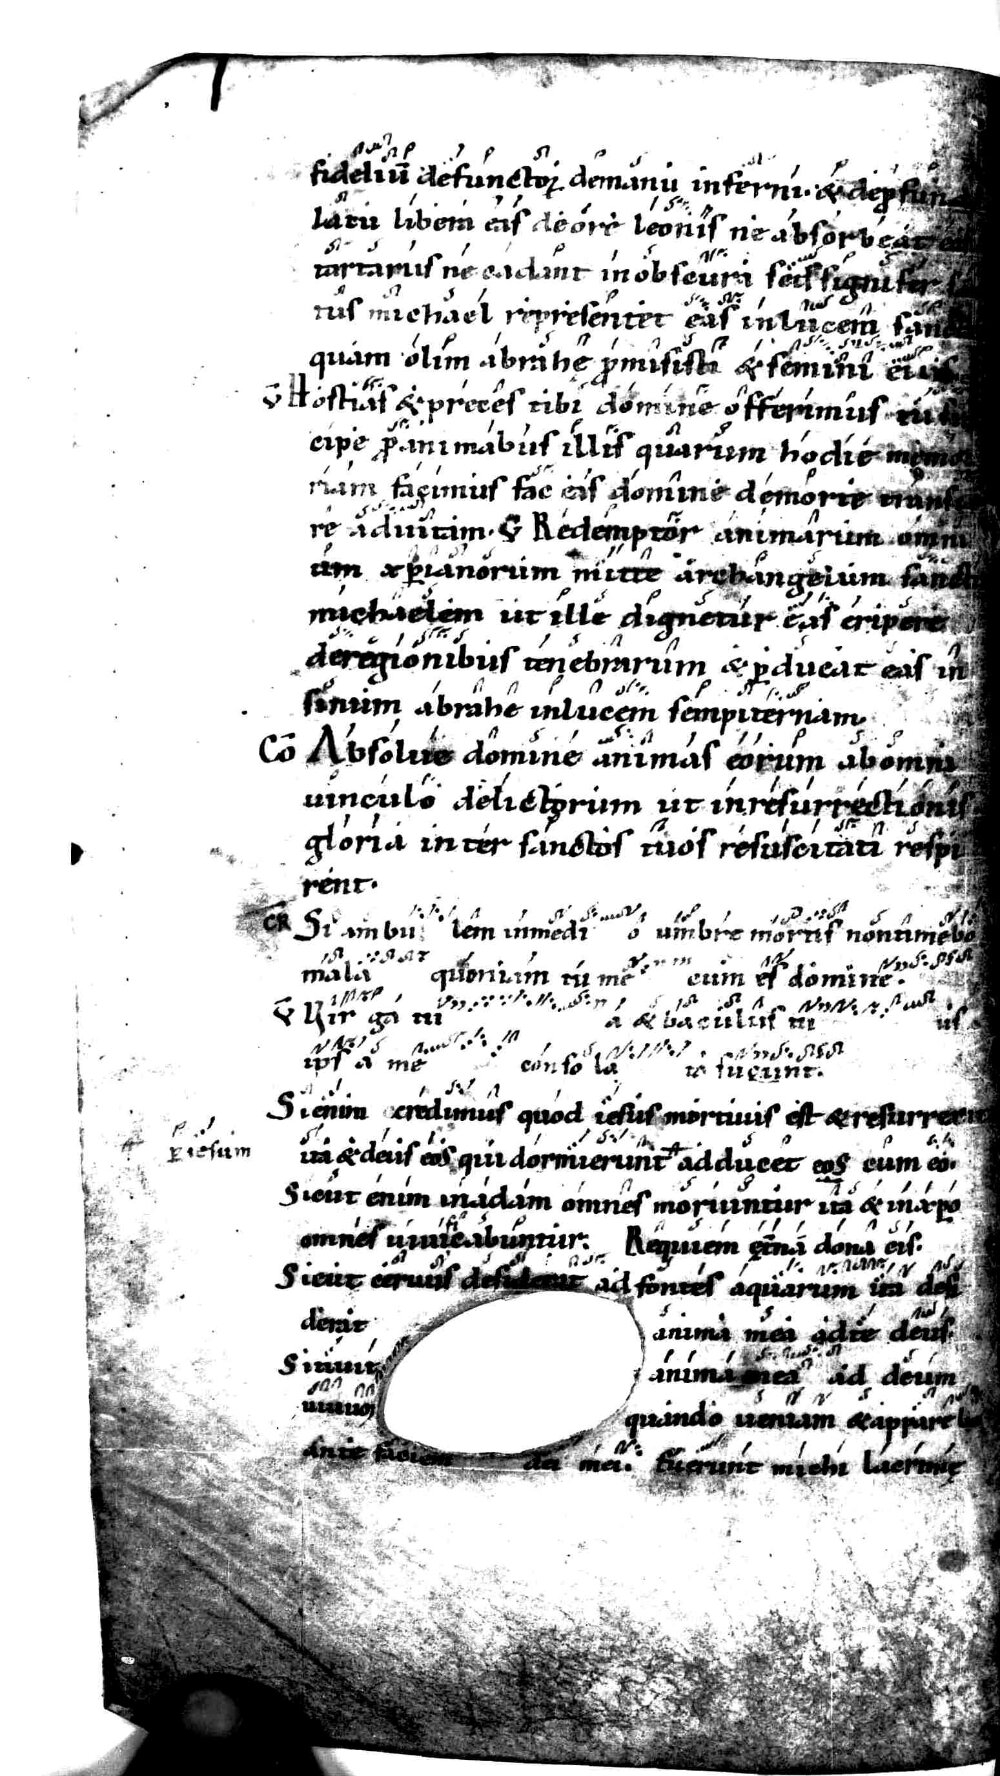 fidelium̅ defunctoꝝ demanu inferni· & deꝓfun
lacu libera eas deore leonis ne absorbeat eas
tartarus ne cadant inobscura sed signifer
tus michael representet eas inlucem
quam olim abrahe ꝓmisisti & semini eius
V̅ Hostias & preces tibi domine offerimus tu
cipe ꝓanimabus illis quarum hodie memo
riam facimus fac eas domine demorte
re aduitam· V̅ Redemptor animarum omni
um xp̅ianorum mitte archangelum
michaelem ut ille dignetur eas eripere
deregionibus tenebrarum & ꝑducat eas in
sinum abrahe inlucem sempiternam.
Co̅ Absolue domine animas eorum abomni
uinculo delictorum ut inresurrectionis
gloria inter sanctos tuos resuscitati respi
rent·
GR Si ambu lem inmedi o umbre mortis nontimebo
mala quoniam tu me cum es domine·
V̅ Uir ga tu a & baculus tu us
ipsa me conso la ta sunt.
Si enim credimus quod iesus mortuus est & resurrexit
ita & deus eos qui dormierunt adducet eos cum eo·
ꝑ iesum
Sicut enim inadam omnes moriuntur ita & inxp̅o
omnes uiuificabuntur. Requiem et̅na dona eis·
Sicut ceruus desiderat ad fontes aquarum ita desi
derat anima mea adte deus·
Sitiuit anima mea ad deum
uiuum quando ueniam & apparebo
ante faciem dei mei· fuerunt michi lacrimę